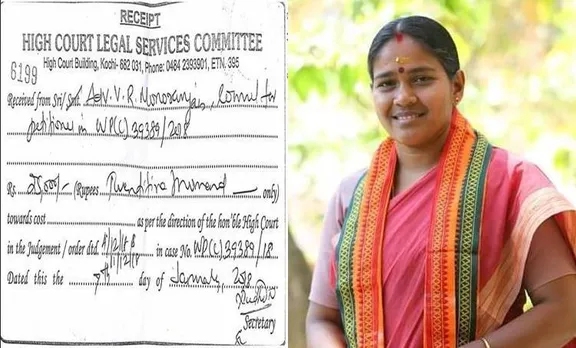 RECEIPT
HIGH COURT LEGAL SERVICES COMMITTEE
High Court Building, Kochi- 682 031, Phone: 0484 2393901, ETN. 395
6199
Received from Sri/Smt. Adv. V. R. Manoranjan, Counsel for
petitioner in WP(C) 39389/2018
Rs 25,000/- (Rupees Twentyfive thousand only)
towards cost as per the direction of the hon'ble High Court
in the Judgement / order dtd in case No. WP(C) 39389/18
Dated this the 7th day of January, 2018
Secretary